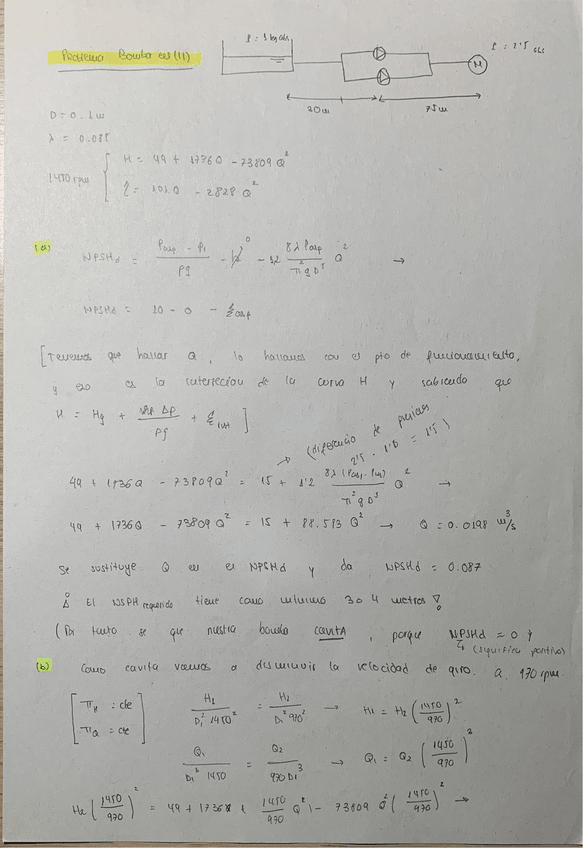 Problema Bombas (11)
P = 1 bar abs
P = 2'5 abs
M
20m
75m
D = 0.1 m
λ = 0.085
1450 rpm
H = 49 + 1736 Q - 73809 Q²
η = 101.Q - 2828 Q²
(a)
NPSHd = Pasp - Pv / ρg - - 1,2 8 λ Lasp / π² g D⁵ Q² →
NPSHd = 10 - 0 - ξasp
[Tenemos que hallar Q, lo hallamos con el pto de funcionamiento,
y eso es la intersección de la curva H y sabiendo que
H = Hg + Δp / ρg + ξ ]
(diferencia de presiones
2'5 - 1'0 = 1'5)
49 + 1736 Q - 73809 Q² = 15 + 1'2 8λ / π² g D⁵ Q² →
49 + 1736 Q - 73809 Q² = 15 + 88.513 Q² → Q = 0.0198 m³/s
Se sustituye Q en el NPSHd y da NPSHd = 0.087
El NSPH requerido tiene como mínimo 3 o 4 metros !
(Por tanto se que nuestra bomba CAVITA, porque NPSHd ≈ 0 !
(b) Como cavita vamos a disminuir la velocidad de giro. a 970 rpm.
[ π_H = cte
π_Q = cte ]
H₁ / D₁² 1450² = H₂ / D₁² 970² → H₁ = H₂ (1450/970)²
Q₁ / D₁³ 1450 = Q₂ / 970 D₁³ → Q₁ = Q₂ (1450/970)
H₂ (1450/970)² = 49 + 1736 1450/970 Q - 73809 Q² (1450/970)² →